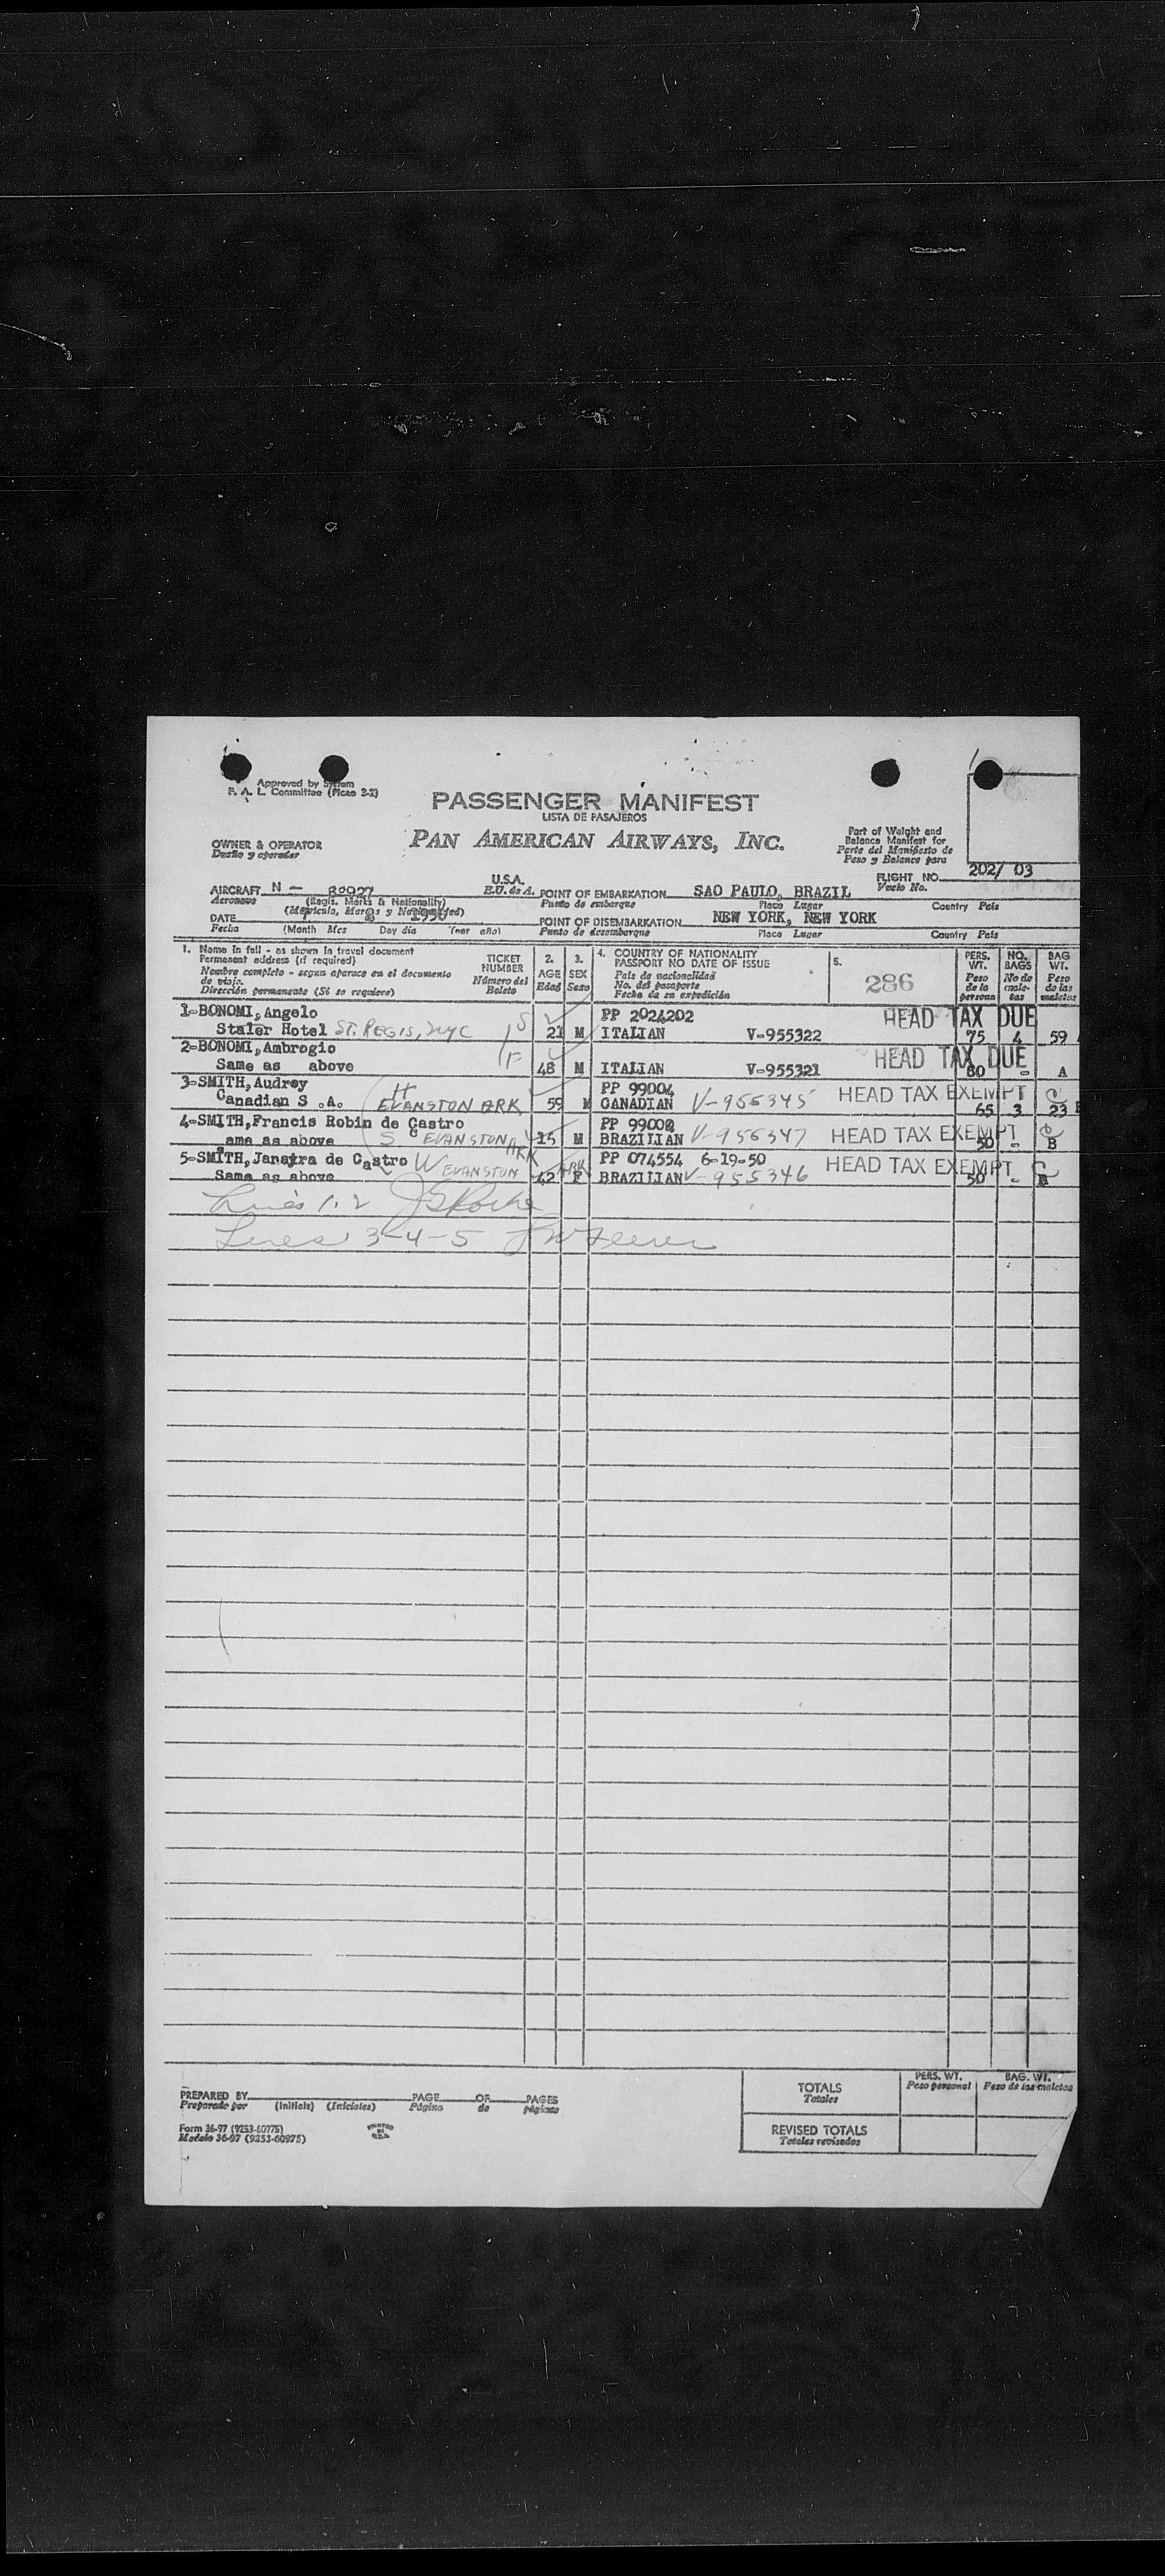 Approved by System
F. A. L. Committee (Picao 2-1)
PASSENGER MANIFEST
LISTA DE PASAJEROS
PAN AMERICAN AIRWAYS, INC.
OWNER & OPERATOR
Dueño y operador
Part of Weight and
Balance Manifest for
Parte del Manifiesto de
Peso y Balance para
FLIGHT NO. 202/ 03
Vuelo No.
AIRCRAFT N — 80927 U.S.A.
Aeronave (Regis. Marks & Nationality) E.U. de A.
(Matrícula, Marcas y Nacionalidad)
POINT OF EMBARKATION SAO PAULO, BRAZIL
Punto de embarque Place Lugar Country País
DATE 1950
Fecha (Month Mes Day día Year año)
POINT OF DISEMBARKATION NEW YORK, NEW YORK
Punto de desembarque Place Lugar Country País
1. Name in full - as shown in travel document
Permanent address (if required)
Nombre completo - segun aparece en el documento
de viaje.
Dirección permanente (Si se requiere)
TICKET
NUMBER
Número del
Boleto
2.
AGE
Edad
3.
SEX
Sexo
4. COUNTRY OF NATIONALITY
PASSPORT NO DATE OF ISSUE
País de nacionalidad
No. del pasaporte
Fecha de su expedición
5.
286
PERS.
WT.
Peso
de la
persona
NO.
BAGS
No de
male-
tas
BAG
WT.
Peso
de las
maletas
1-BONOMI, Angelo PP 2024202 HEAD TAX DUE
Staler Hotel ST. REGIS, NYC S 21 M ITALIAN V-955322 75 4 59
2-BONOMI, Ambrogio HEAD TAX DUE
Same as above F 48 M ITALIAN V-955321 80 - A
3-SMITH, Audrey H PP 99004 HEAD TAX EXEMPT
Canadian S .A. EVANSTON ARK 59 M CANADIAN V-955345 65 3 23
4-SMITH, Francis Robin de Castro PP 99002 HEAD TAX EXEMPT
ame as above S EVANSTON ARK 15 M BRAZILIAN V-955347 50 - B
5-SMITH, Janayra de Castro W EVANSTON ARK PP 074554 6-19-50 HEAD TAX EXEMPT
Same as above 42 F BRAZILIAN V-955346 50 -
Lines 1. 2
Lines 3-4-5
PREPARED BY PAGE OF PAGES
Preparado por (Initials) (Iniciales) Página de páginas
Form 36-97 (9253-60975)
Modelo 36-97 (9253-60975)
PRINTED
IN
U.S.A.
TOTALS
Totales
PERS. WT.
Peso personal
BAG. WT.
Peso de las maletas
REVISED TOTALS
Totales revisados